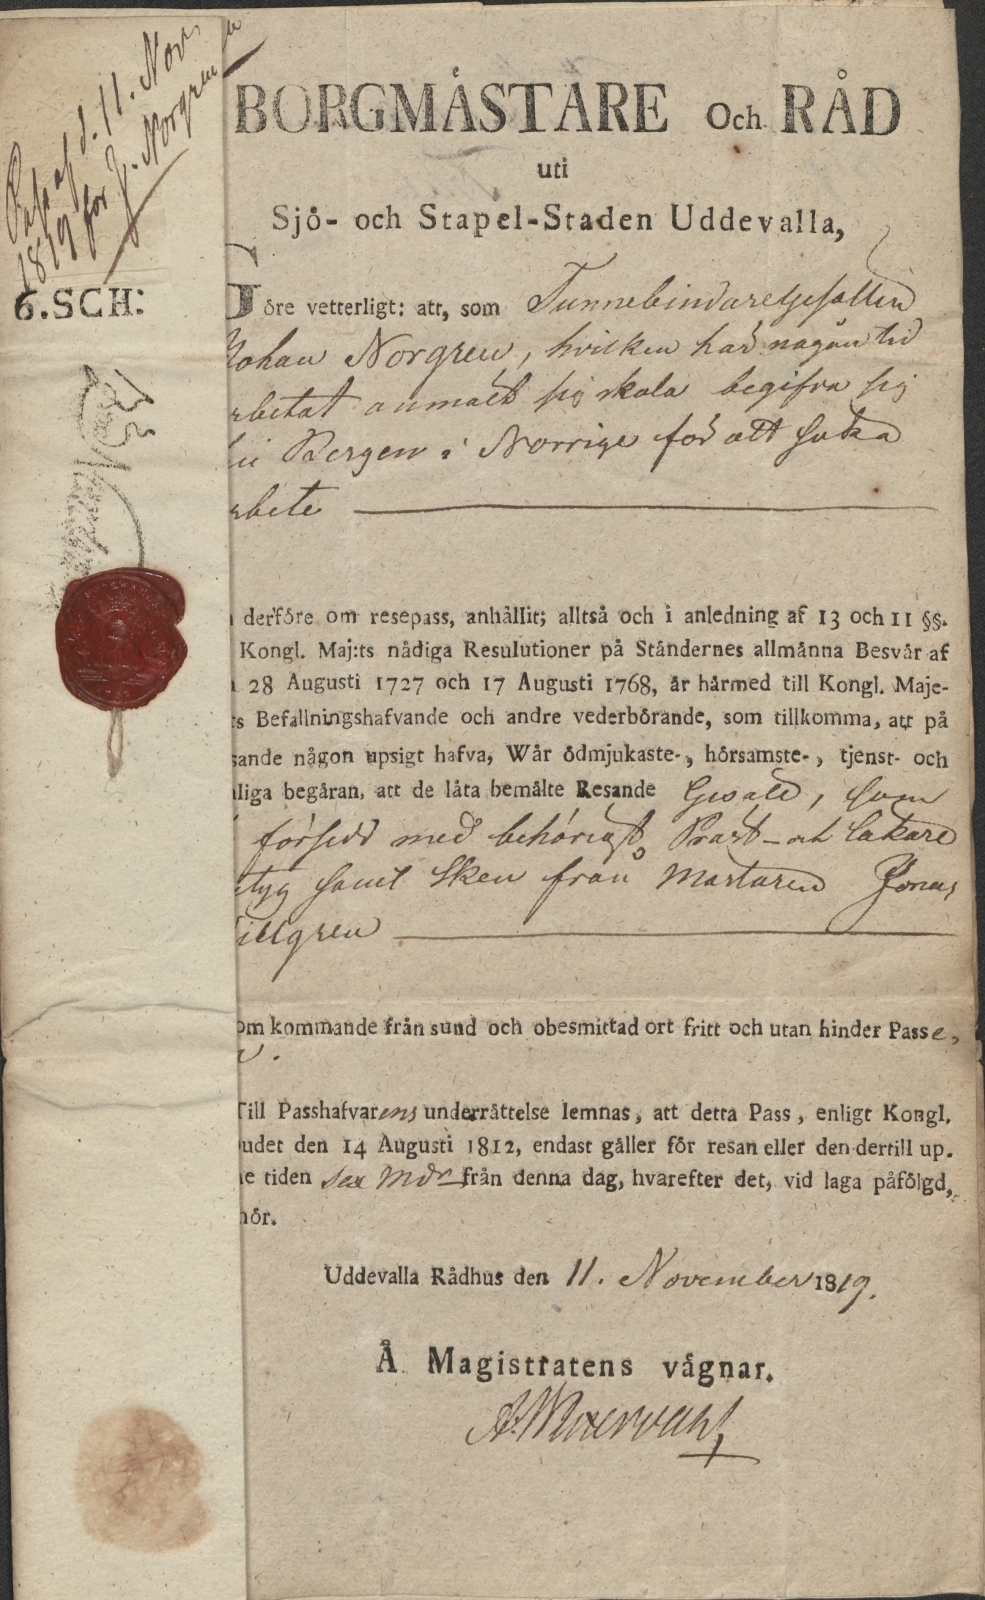 Pass af d. 11. Nov.
1819 for J. Norgren
6. SCH:
BORGMÅSTARE och RÅD
uti
Sjö- och Stapel-Staden Uddevalla,
Göre vetterligt: att, som Tunnebindaregesällen
Johan Norgren, hvilken har någon tid
rbetat anmält sig skola begifva sig
Bergen i Norrige för att söka
rbete
derföre om resepass, anhållit; alltså och i anledning af 13 och 11 §§.
Kongl. Maj:ts nådiga Resulutioner på Ståndernes allmånna Besvår af
28 Augusti 1727 och 17 Augusti 1768, år hårmed till Kongl. Maje-
ts Befallningshafvande och andre vederbörande, som tillkomma, att på
sande någon upsigt hafva, Wår ödmjukaste-, hörsamste-, tjenst- och
liga begåran, att de låta bemålte Resande Gesäll, som
försedd med behörigt Präst- och Läkare
tyg samt Sken från Mästaren Jonas
illgren
om kommande från sund och obesmittad ort fritt och utan hinder Passe,
Till Passhafvarens underråttelse lemnas, att detta Pass, enligt Kongl.
udet den 14 Augusti 1812, endast gåller för resan eller den dertill up.
e tiden sex Mdr från denna dag, hvarefter det, vid laga påfölgd,
hör.
Uddevalla Rådhus den 11. November 1819.
Å Magistratens vågnar.